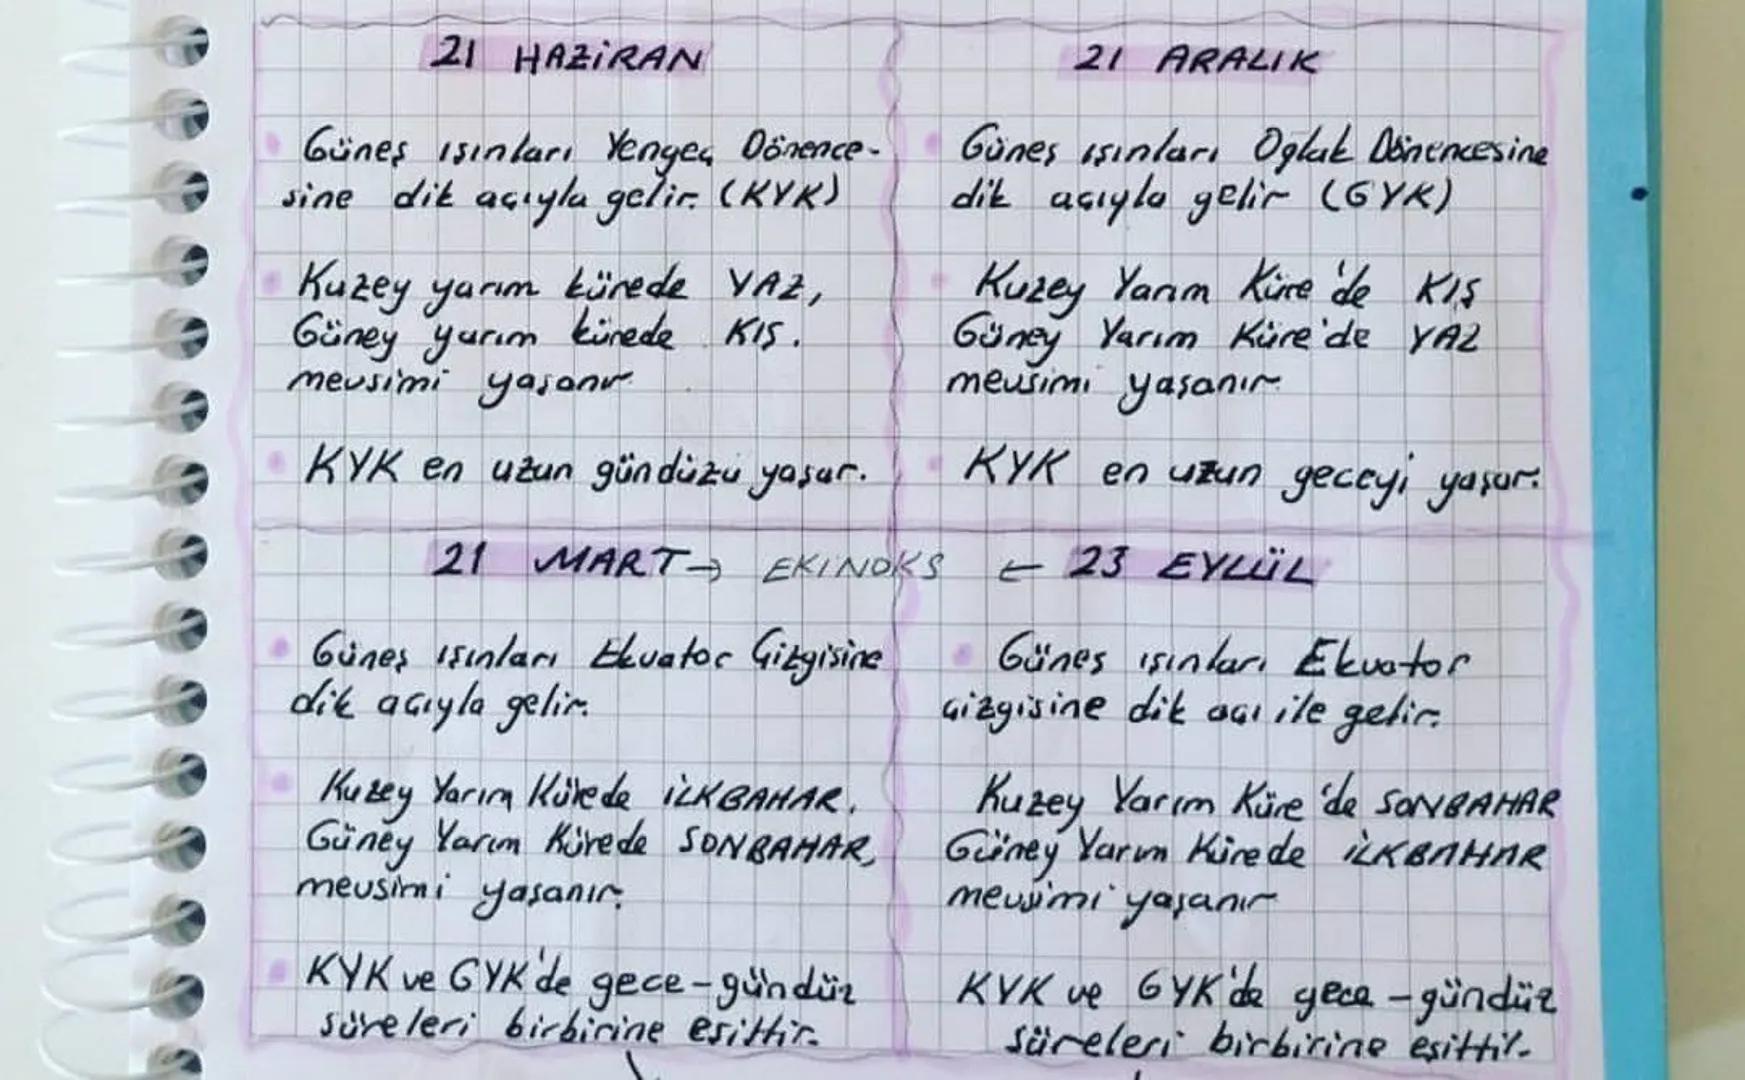 21 HAZİRAN
Güneş ışınları Yengeç Dönence-
sine dik açıyla gelir. (KYK)
Kuzey yarım kürede YAZ,
Güney yarım kürede KIŞ.
mevsimi yaşanır
KYK en uzun gündüzü yaşar.
21 ARALIK
Güneş ışınları Oğlak Dönencesine
dik açıyla gelir (GYK)
Kuzey Yarım Küre'de KIŞ
Güney Yarım Küre'de YAZ
mevsimi yaşanır.
KYK en uzun geceyi yaşar.
21 MART → EKİNOKS ← 23 EYLÜL
Güneş ışınları Ekvator Çizgisine
dik açıyla gelir.
Kuzey Yarım Kürede İLKBAHAR,
Güney Yarım Kürede SONBAHAR,
mevsimi yaşanır.
KYK ve GYK'de gece-gündüz
süreleri birbirine eşittir.
Güneş ışınları Ekvator
çizgisine dik açı ile gelir.
Kuzey Yarım Küre'de SONBAHAR
Güney Yarım Kürede İLKBAHAR
mevsimi yaşanır
KYK ve GYK'da gece-gündüz
süreleri birbirine eşittir.